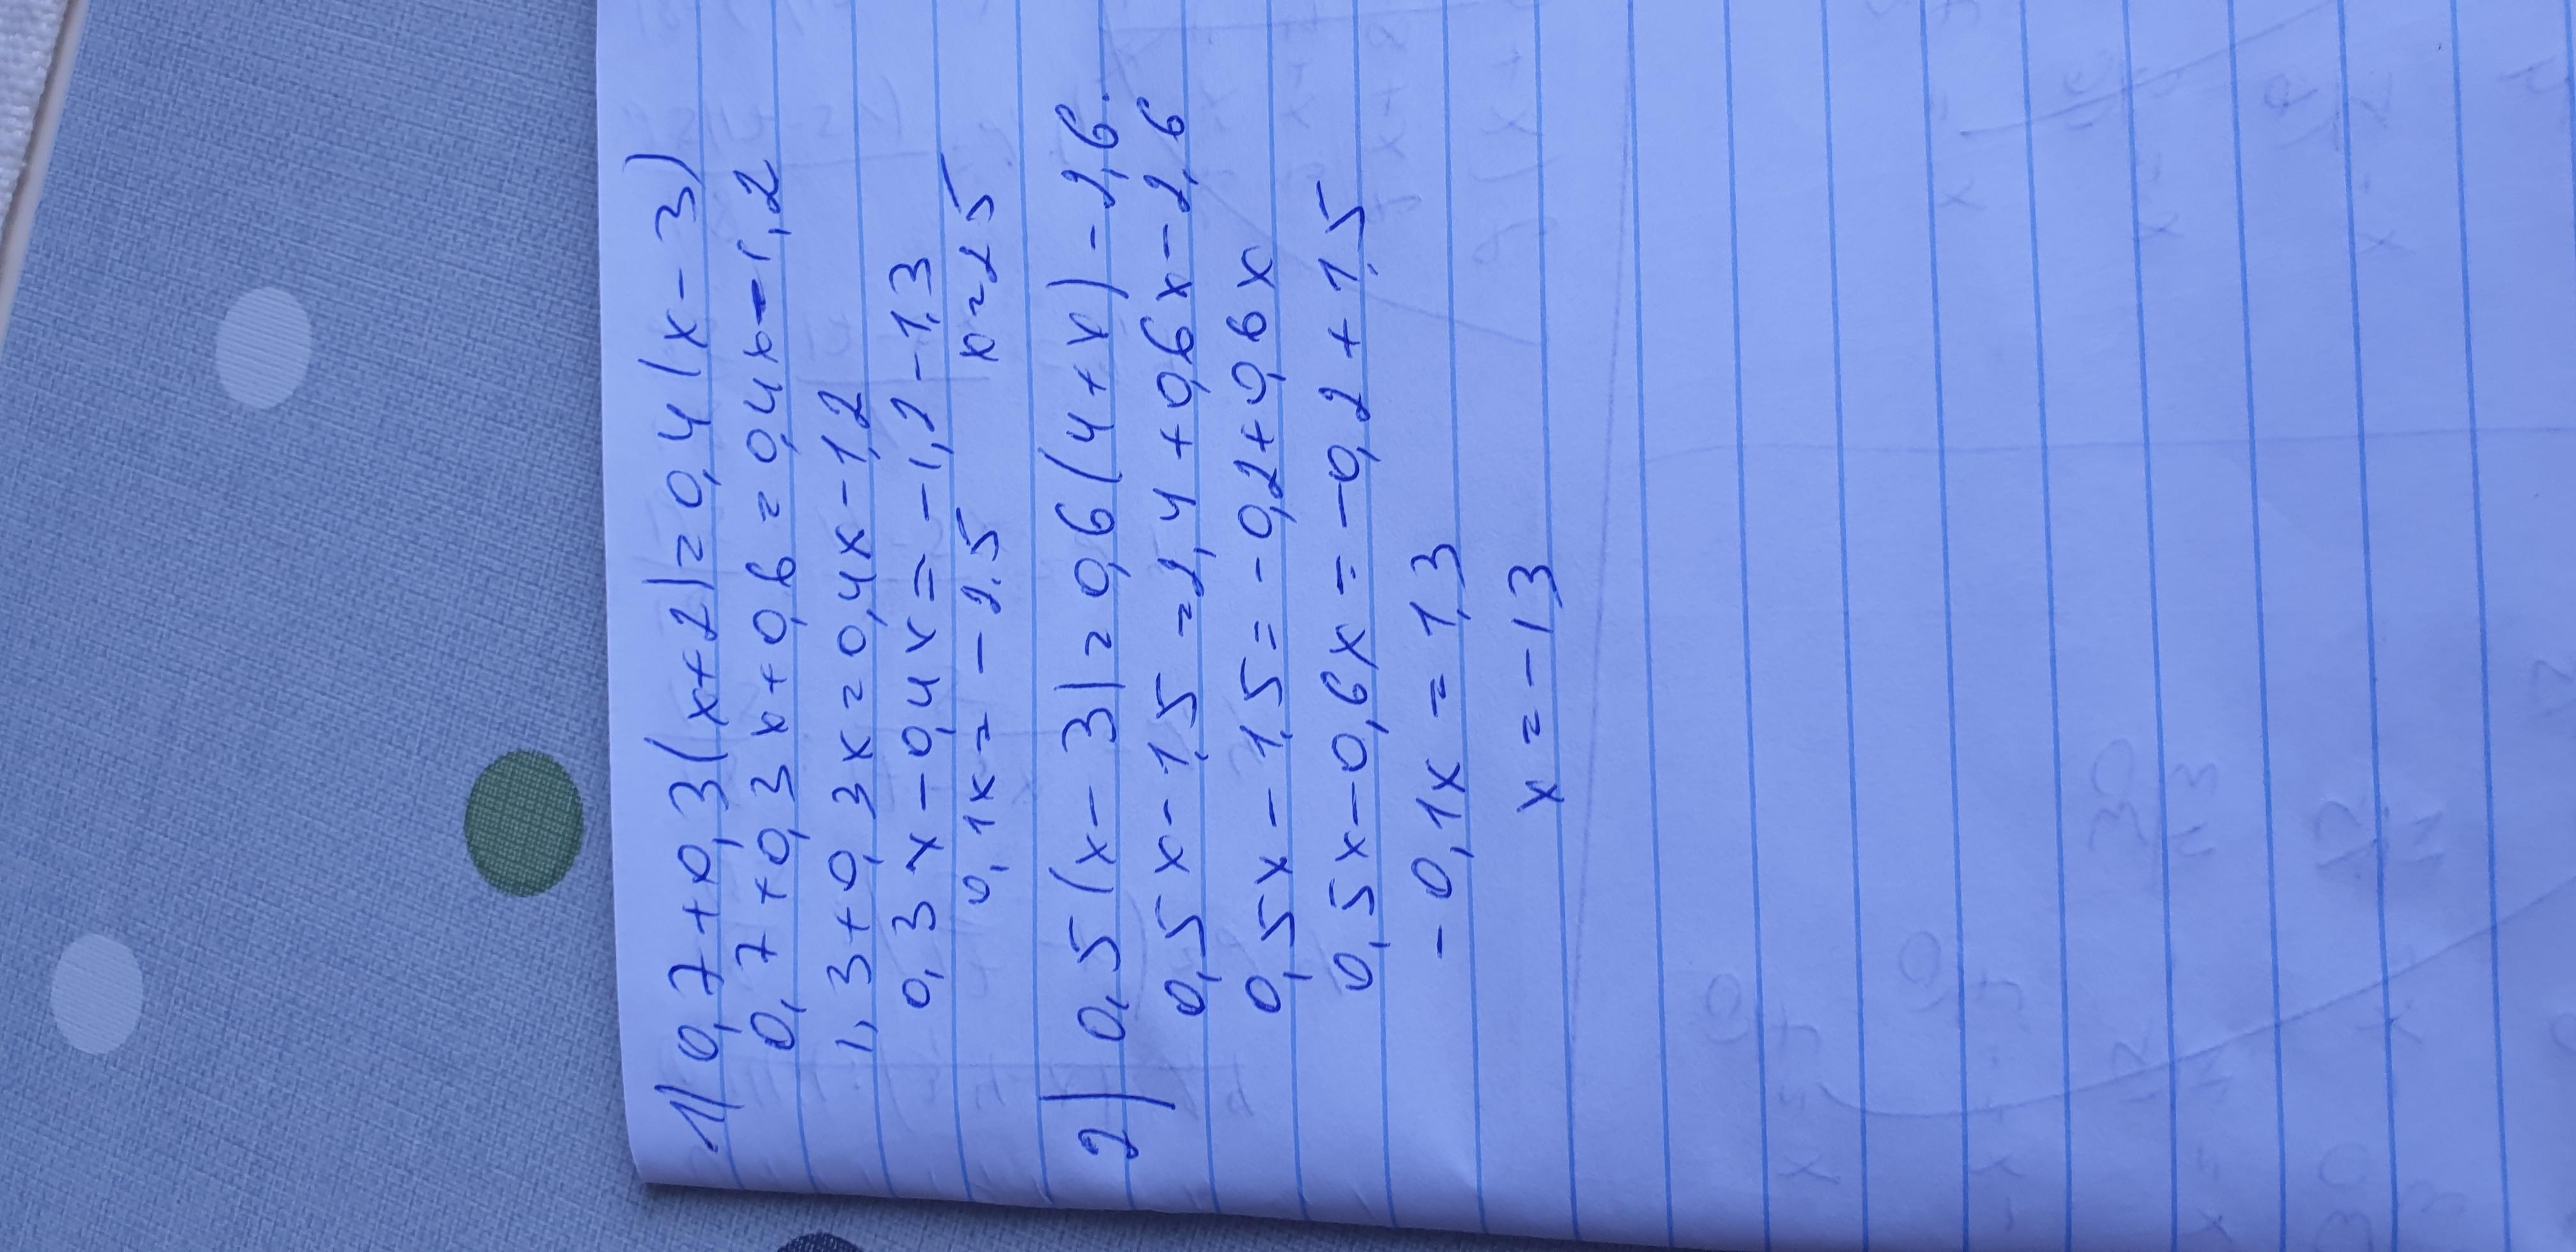 1) 0,7+0,3(x+2)=0,4(x-3)
0,7+0,3x+0,6=0,4x-1,2
1,3+0,3x=0,4x-1,2
0,3x-0,4x=-1,2-1,3
0,1x=-2.5 x=25
2) 0,5(x-3)=0,6(4+x)-2,6.
0,5x-1,5=2,4+0,6x-2,6
0,5x-1,5=-0,2+0,6x
0,5x-0,6x=-0,2+1,5
-0,1x=1,3
x=-13